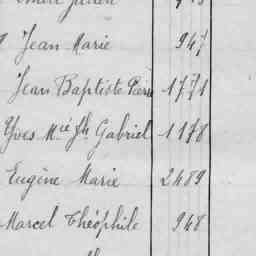 Jean Marie 947
Jean Baptiste Pierre 1771
Yves Mie Jh Gabriel 1178
Eugène Marie 2489
Marcel Théophile 948